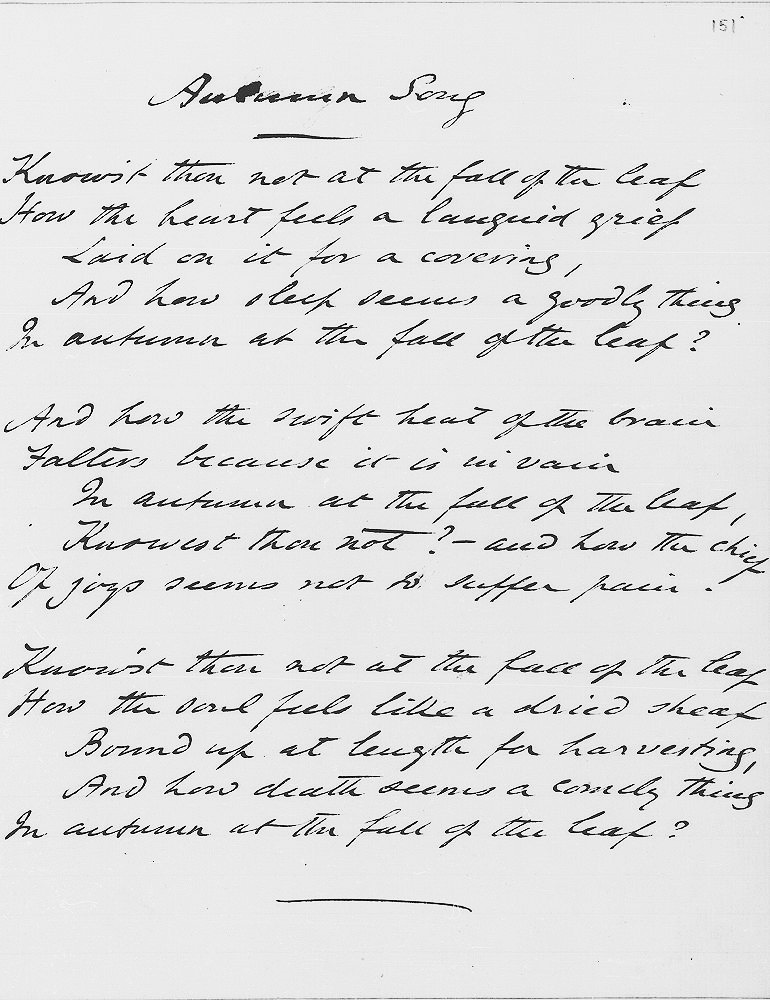 151
Autumn Song
Know'st thou not at the fall of the leaf
How the heart feels a languid grief
Laid on it for a covering,
And how sleep seems a goodly thing
In autumn at the fall of the leaf?
And how the swift beat of the brain
Falters because it is in vain
In autumn at the fall of the leaf,
Knowest thou not? – and how the chief
Of joys seems not to suffer pain.
Know'st thou not at the fall of the leaf
How the soul feels like a dried sheaf
Bound up at length for harvesting,
And how death seems a comely thing
In autumn at the fall of the leaf?